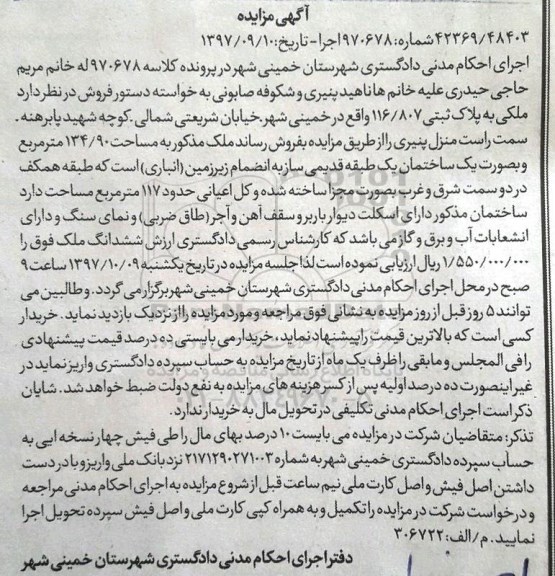 آگهی مزایده
۴۲۳۶۹/۴۸۴۰۳شماره:۹۷۰۶۷۸اجرا-تاریخ:۱۳۹۷/۰۹/۱۰
اجرای احکام مدنی دادگستری شهرستان خمینی شهر در پرونده کلاسه ۹۷۰۶۷۸ له خانم مریم
حاجی حیدری علیه خانم ها ناهید پنیری و شکوفه صابونی به خواسته دستور فروش در نظر دارد
ملکی به پلاک ثبتی ۱۱۶/۸۰۷ واقع در خمینی شهر.خیابان شریعتی شمالی.کوچه شهید پابرهنه.
سمت راست منزل پنیری را از طریق مزایده بفروش رساند ملک مذکور به مساحت ۱۳۴/۹۰ مترمربع
و بصورت یک ساختمان یک طبقه قدیمی ساز به انضمام زیرزمین (انباری) است که طبقه همکف
در دو سمت شرق و غرب بصورت مجزا ساخته شده و کل اعیانی حدود ۱۱۷ مترمربع مساحت دارد
ساختمان مذکور دارای اسکلت دیوار باربر و سقف آهن و آجر (طاق ضربی) و نمای سنگ و دارای
انشعابات آب و برق و گاز می باشد که کارشناس رسمی دادگستری ارزش ششدانگ ملک فوق را
۱/۵۵۰/۰۰۰/۰۰۰ ریال ارزیابی نموده است لذا جلسه مزایده در تاریخ یکشنبه ۱۳۹۷/۱۰/۰۹ ساعت ۹
صبح در محل اجرای احکام مدنی دادگستری شهرستان خمینی شهر برگزار می گردد. و طالبین می
توانند ۵ روز قبل از روز مزایده به نشانی فوق مراجعه و مورد مزایده را از نزدیک بازدید نماید. خریدار
کسی است که بالاترین قیمت را پیشنهاد نماید. خریدار می بایستی ده درصد قیمت پیشنهادی
را فی المجلس و مابقی را ظرف یک ماه از تاریخ مزایده به حساب سپرده دادگستری واریز نماید در
غیر اینصورت ده درصد اولیه پس از کسر هزینه های مزایده به نفع دولت ضبط خواهد شد. شایان
ذکر است اجرای احکام مدنی تکلیفی در تحویل مال به خریدار ندارد.
تذکر: متقاضیان شرکت در مزایده می بایست ۱۰ درصد بهای مال را طی فیش چهار نسخه ایی به
حساب سپرده دادگستری خمینی شهر به شماره ۲۱۷۱۲۹۰۲۷۱۰۰۳ نزد بانک ملی واریز و با در دست
داشتن اصل فیش و اصل کارت ملی نیم ساعت قبل از شروع مزایده به اجرای احکام مدنی مراجعه
و درخواست شرکت در مزایده را تکمیل و به همراه کپی کارت ملی و اصل فیش سپرده تحویل اجرا
نمایید. م/الف: ۳۰۶۷۲۲
دفتر اجرای احکام مدنی دادگستری شهرستان خمینی شهر